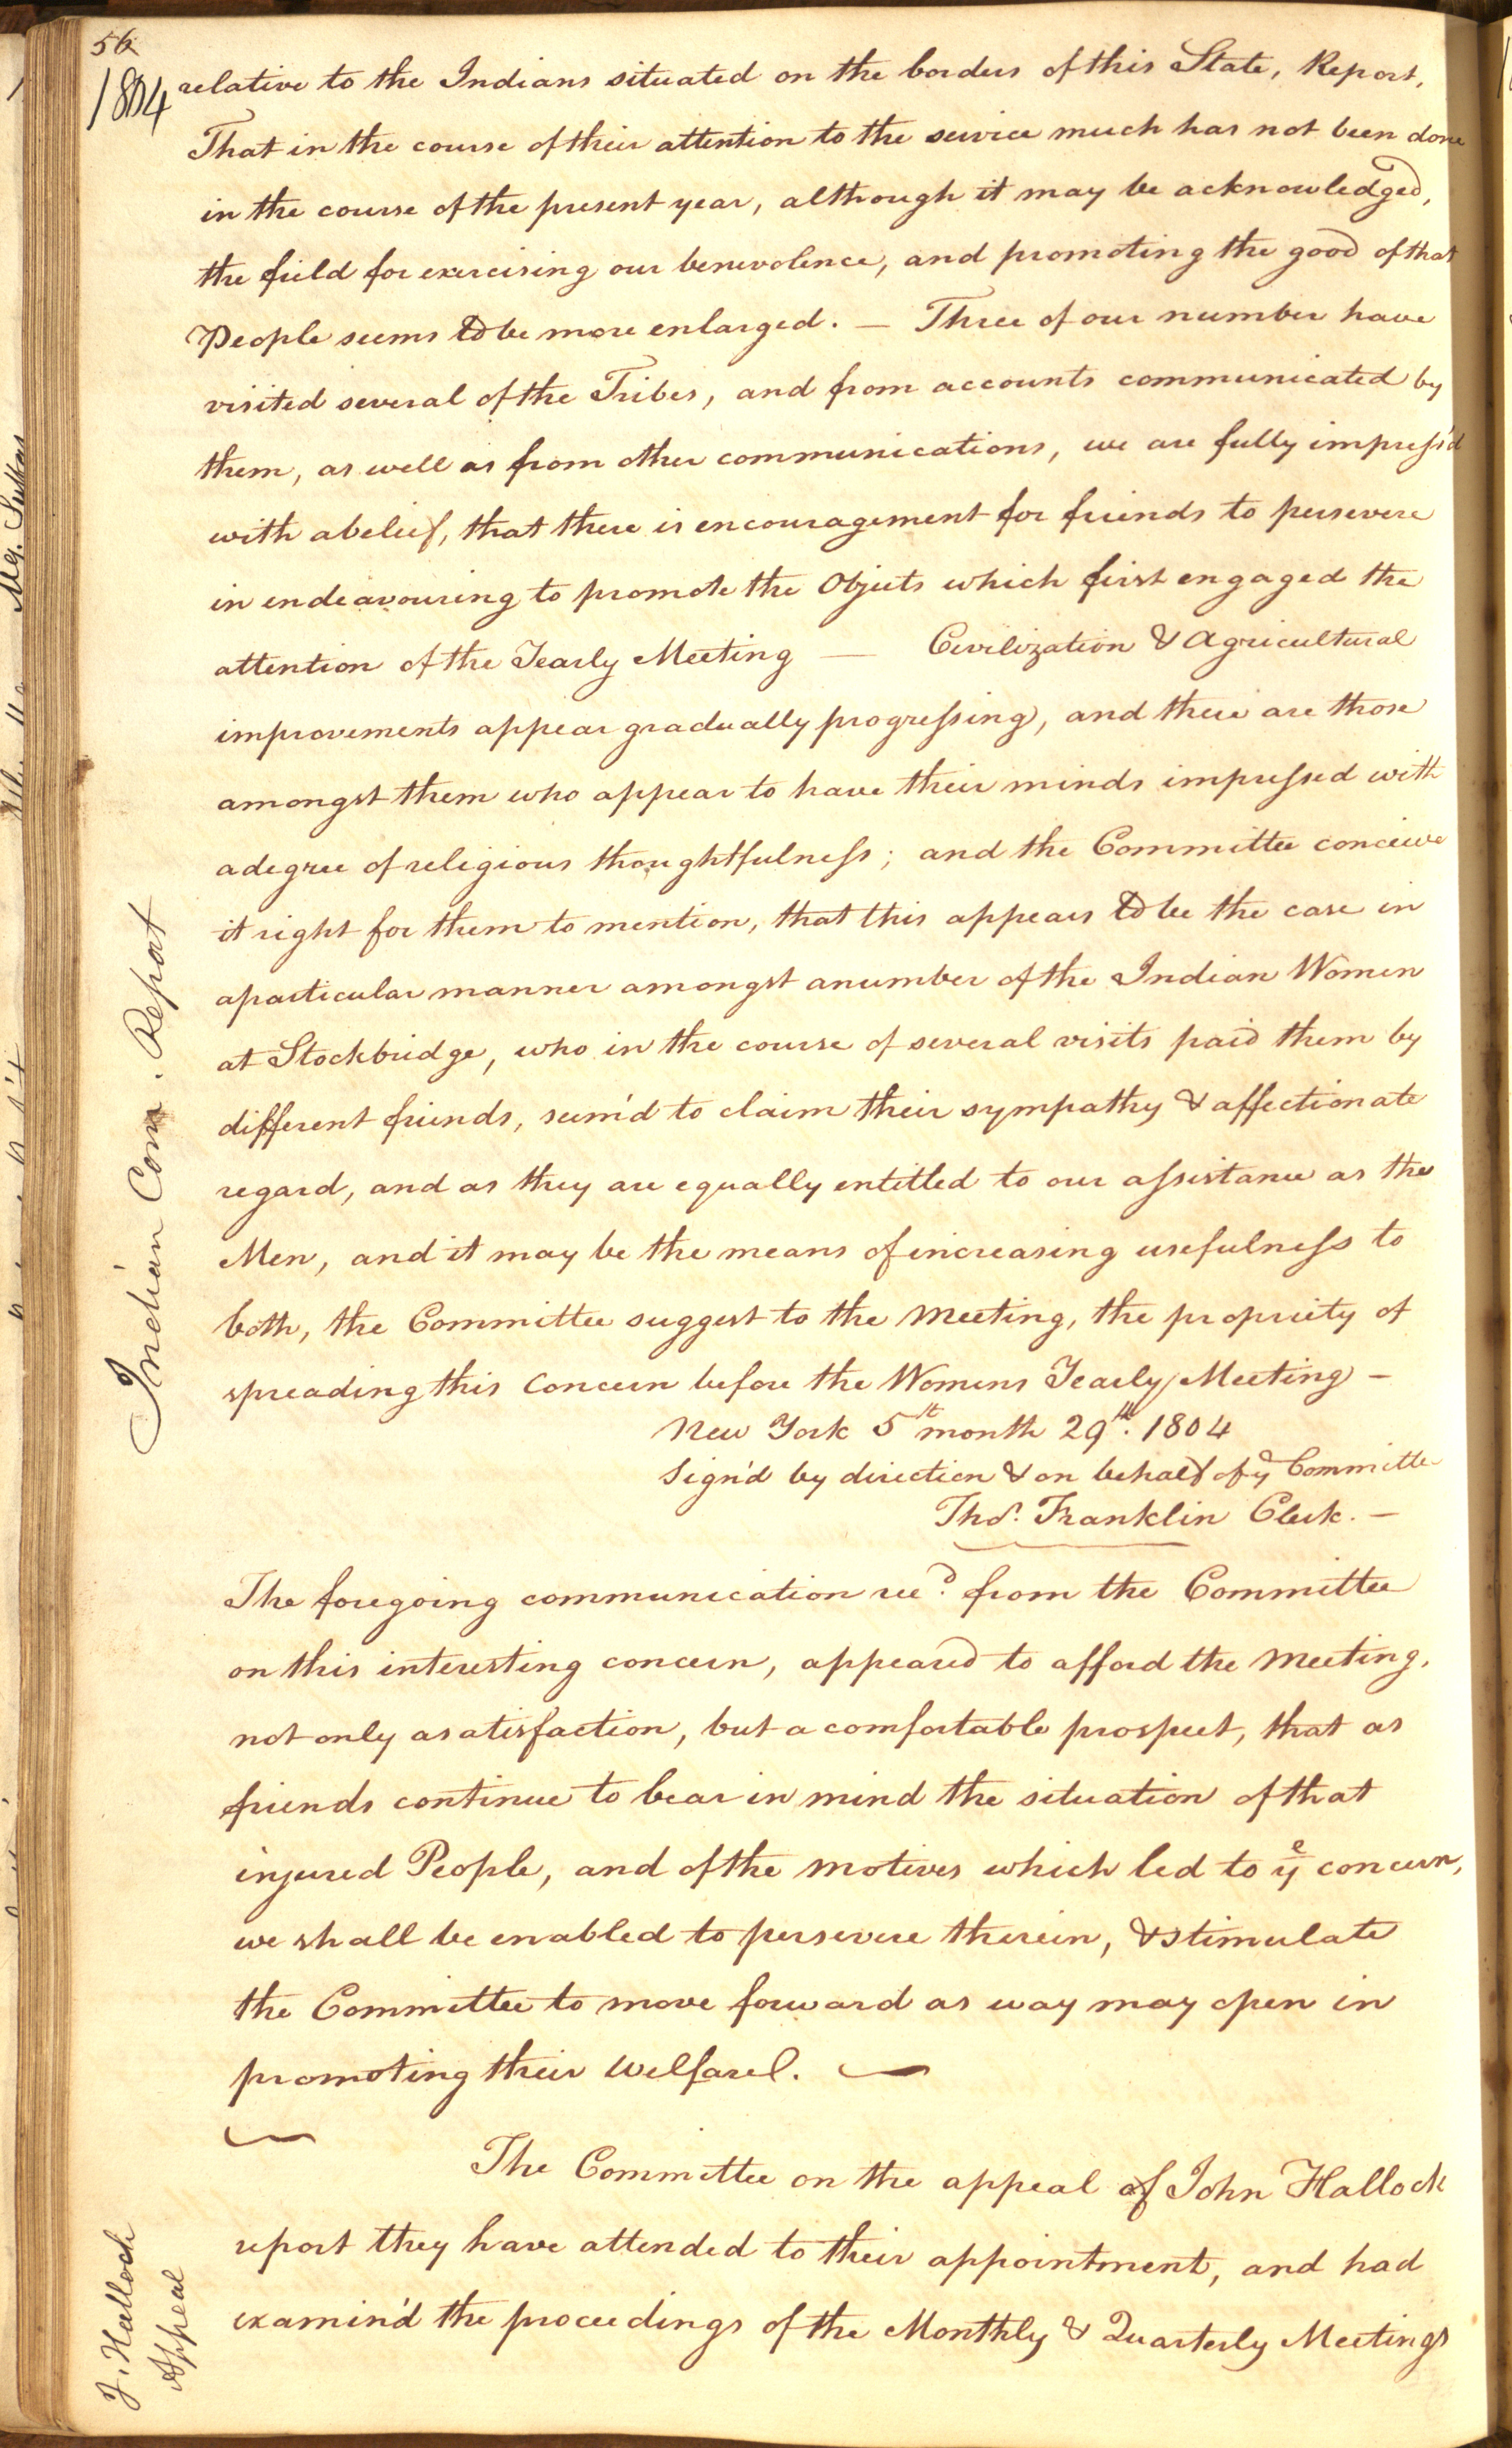 56
1804
relative to the Indians situated on the borders of this State, Report,
That in the course of their attention to the service much has not been done
in the course of the present year, although it may be acknowledged,
the field for exercising our benevolence, and promoting the good of that
People seems to be more enlarged. — Three of our number have
visited several of the Tribes, and from accounts communicated by
them, as well as from other communications, we are fully impress'd
with a belief, that there is encouragement for friends to persevere
in endeavouring to promote the Objects which first engaged the
attention of the Yearly Meeting — Civilization & Agricultural
improvements appear gradually progressing, and there are those
amongst them who appear to have their minds impressed with
a degree of religious thoughtfulness; and the Committee conceive
it right for them to mention, that this appears to be the case in
a particular manner amongst a number of the Indian Women
at Stockbridge, who in the course of several visits paid them by
different friends, seem'd to claim their sympathy & affectionate
regard, and as they are equally entitled to our assistance as the
Men, and it may be the means of increasing usefulness to
both, the Committee suggest to the Meeting, the propriety of
spreading this Concern before the Womens Yearly Meeting —
New York 5th month 29th. 1804
Sign'd by direction & on behalf of ye Committee
Thos. Franklin Clerk. —
Indian Com. Report
The foregoing communication recd. from the Committee
on this interesting concern, appeared to afford the Meeting,
not only a satisfaction, but a comfortable prospect, that as
friends continue to bear in mind the situation of that
injured People, and of the motives which led to ye concern,
we shall be enabled to persevere therein, & stimulate
the Committee to move forward as way may open in
promoting their Welfare. —
The Committee on the appeal of John Hallock
report they have attended to their appointment, and had
examin'd the proceedings of the Monthly & Quarterly Meetings
J. Hallock
Appeal